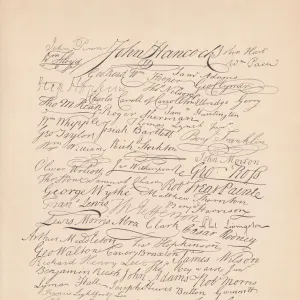 John Penn John Hancock John Hart
Wm Floyd Wm Paca
Gerhard Wm Hooper Sam Adams
Step Hopkins Geo Clymer
Charles Carroll of Carrollton Elbridge Gerry
Tho M: Kean Roger Sherman Sam Huntington
Wm Whipple
Geo Taylor Josiah Bartlett Benj Franklin
Wm Williams Richd Stockton
John Morton
Oliver Wolcott Jno Witherspoon Geo Ross
Samuel Chase Robt Treat Paine
George Wythe Matthew Thornton
Frans Lewis Benj Harrison
Lewis Morris Abra Clark Phil. Livingston
Caesar Rodney
Arthur Middleton Fras Hopkinson
Geo Walton Carter Braxton James Wilson
Richard Henry Lee Tho
Benjamin Rush John Adams Robt Morris
Lyman Hall Joseph Hewes Button Gwinnett
Francis Lightfoot Lee